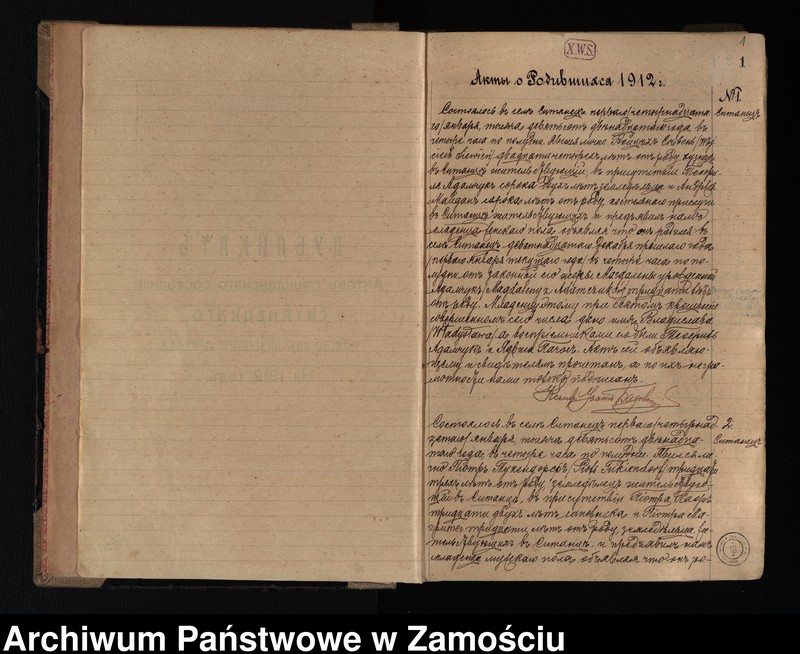 1
1
X.W.S.
Акты о Родившихся 1912 г.
№1.
Ситанецъ
Состоялось въ селѣ Ситанецъ перваго /четырнадцата
го/ января, тысяча девятьсотъ двѣнадцатаго года въ
четыре часа по полудни. Явился лично
двадцати четырехъ лѣтъ отъ роду
въ Ситанцѣ жительствующій, въ присутствіи Теофи-
ла Адамчукъ сорока двухъ лѣтъ земледѣльца и Андрея
Майданъ сорока лѣтъ отъ роду,
въ Ситанцѣ жительствующихъ и предъявилъ намъ
младенца женского пола, объявляя что онъ родился въ
селѣ Ситанецъ девятнадцатаго Декабря прошлаго года
/перваго Января текущаго года/ въ четыре часа по по-
лудни, отъ законной его жены Магдалены урожденной
Адамчукъ /Magdaleny z Adamczuków/ тридцати лѣтъ
отъ роду. Младенцу этому при святомъ крещеніи
совершенномъ сего числа, дано имя Владислава
/Władysława/ а воспріемниками его были Теофилъ
Адамчукъ и Ядвига Пачосъ. Актъ сей объявляю-
щему и свидѣтелямъ прочитанъ, а по ихъ негра-
мотности нами только подписанъ.
Состоялось въ селѣ Ситанецъ перваго /четырнад-
цатаго/ января, тысяча девятьсотъ двѣнадца-
таго года, въ четыре часа по полудни. Явился ли-
чно Піотръ Тукендорфъ /Piotr Tukiendorf/ тридцати
трехъ лѣтъ отъ роду, земледѣлецъ жительствую-
щій въ Ситанцѣ, въ присутствіи Піотра
тридцати двухъ лѣтъ и Піотра
тридцати лѣтъ отъ роду, земледѣльца, жи-
тельствующихъ въ Ситанцѣ, и предъявилъ намъ
младенца мужскаго пола, объявляя что онъ ро-
2.
Ситанецъ
Archiwum Państwowe w Zamościu